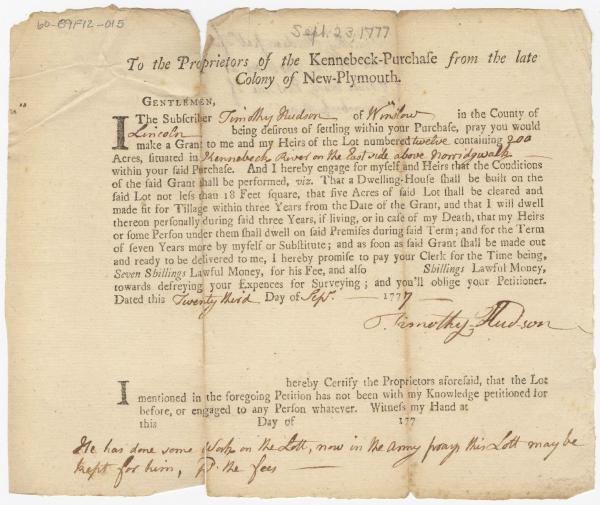 60-89F12-015
Sept. 23, 1777
To the Proprietors of the Kennebeck-Purchaſe from the late
Colony of New-Plymouth.
GENTLEMEN,
I The Subſcriber Timothy Hudson of Winslow in the County of
Lincoln being deſirous of ſettling within your Purchaſe, pray you would
make a Grant to me and my Heirs of the Lot numbered twelve containing 200
Acres, situated in Kennebeck River on the East side above Norridgwalk
within your ſaid Purchaſe. And I hereby engage for myſelf and Heirs that the Conditions
of the ſaid Grant ſhall be performed, viz. That a Dwelling-Houſe ſhall be built on the
ſaid Lot not leſs than 18 Feet ſquare, that five Acres of ſaid Lot ſhall be cleared and
made fit for Tillage within three Years from the Date of the Grant, and that I will dwell
thereon perſonally during ſaid three Years, if living, or in caſe of my Death, that my Heirs
or ſome Perſon under them ſhall dwell on ſaid Premiſes during ſaid Term; and for the Term
of ſeven Years more by myſelf or Subſtitute; and as ſoon as ſaid Grant ſhall be made out
and ready to be delivered to me, I hereby promiſe to pay your Clerk for the Time being,
Seven Shillings Lawful Money, for his Fee, and alſo Shillings Lawful Money,
towards defreying your Expences for Surveying; and you'll oblige your Petitioner.
Dated this Twenty third Day of Sepr. 1777
Timothy Hudson
I hereby Certify the Proprietors aforeſaid, that the Lot
mentioned in the foregoing Petition has not been with my Knowledge petitioned for
before, or engaged to any Perſon whatever. Witneſs my Hand at
this Day of 177
He has done some Work on the Lott, now in the Army prays this Lott may be
kept for him, Pd. the fees